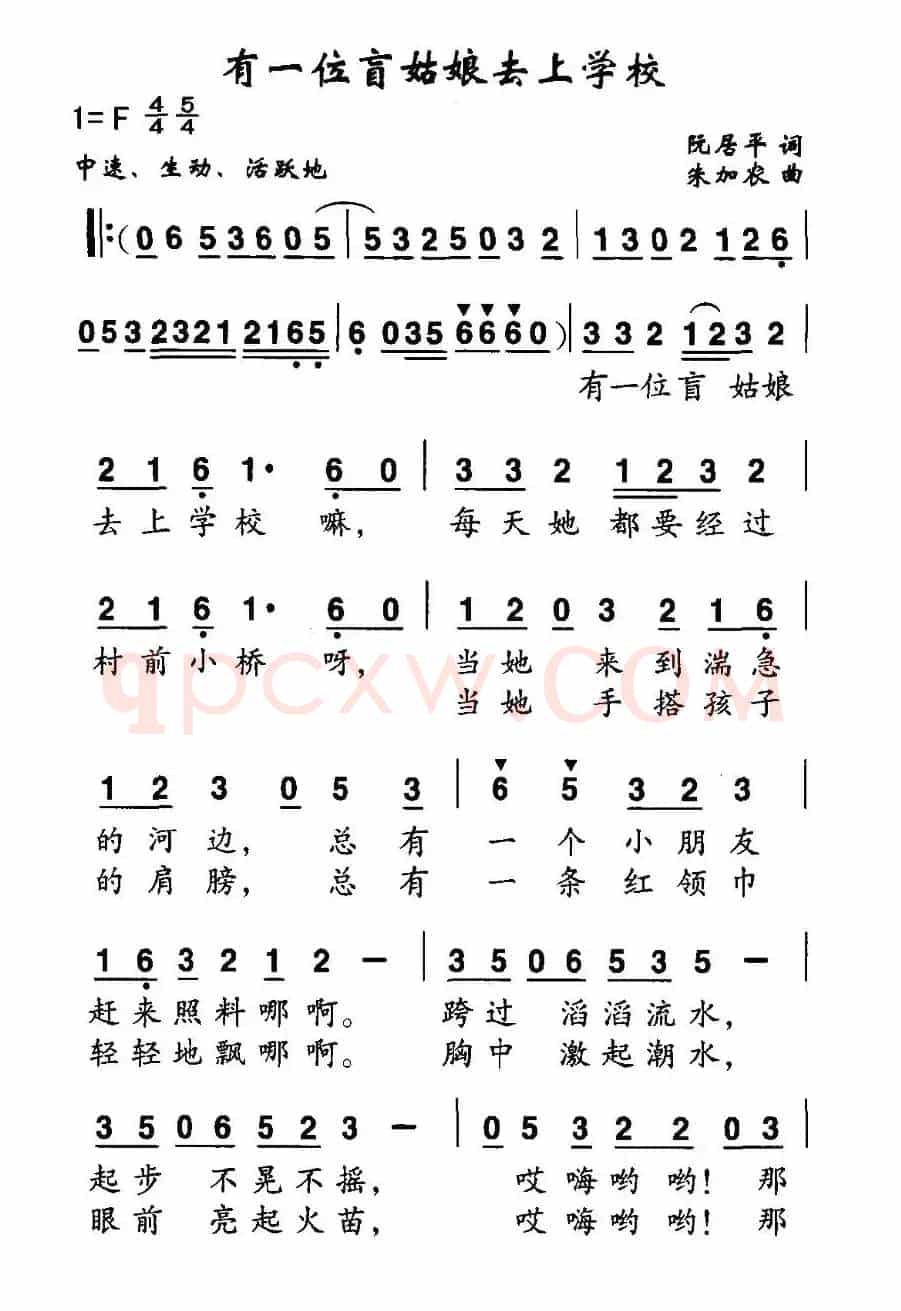 有一位盲姑娘去上学校
1=F 4/4 5/4
阮居平 词
中速、生动、活跃地
朱加农 曲
‖:(0 6 5 3 6 0 5 | 5 3 2 5 0 3 2 | 1 3 0 2 1 2 6 |
0 5 3 2 3 2 1 2 1 6 5 | 6 0 3 5 6 6 6 0) | 3 3 2 1 2 3 2 |
有一位盲 姑娘
2 1 6 1· 6 0 | 3 3 2 1 2 3 2 |
去上学校 嘛, 每天她 都要经过
2 1 6 1· 6 0 | 1 2 0 3 2 1 6 |
村前小桥 呀, 当她 来到湍急
当她 手搭孩子
qpcxw.COM
1 2 3 0 5 3 | 6 5 3 2 3 |
的河边, 总有 一个小朋友
的肩膀, 总有 一条红领巾
1 6 3 2 1 2 - | 3 5 0 6 5 3 5 - |
赶来照料哪啊。 跨过 滔滔流水,
轻轻地飘哪啊。 胸中 激起潮水,
3 5 0 6 5 2 3 - | 0 5 3 2 2 0 3 |
起步 不晃不摇, 哎嗨哟哟! 那
眼前 亮起火苗, 哎嗨哟哟! 那